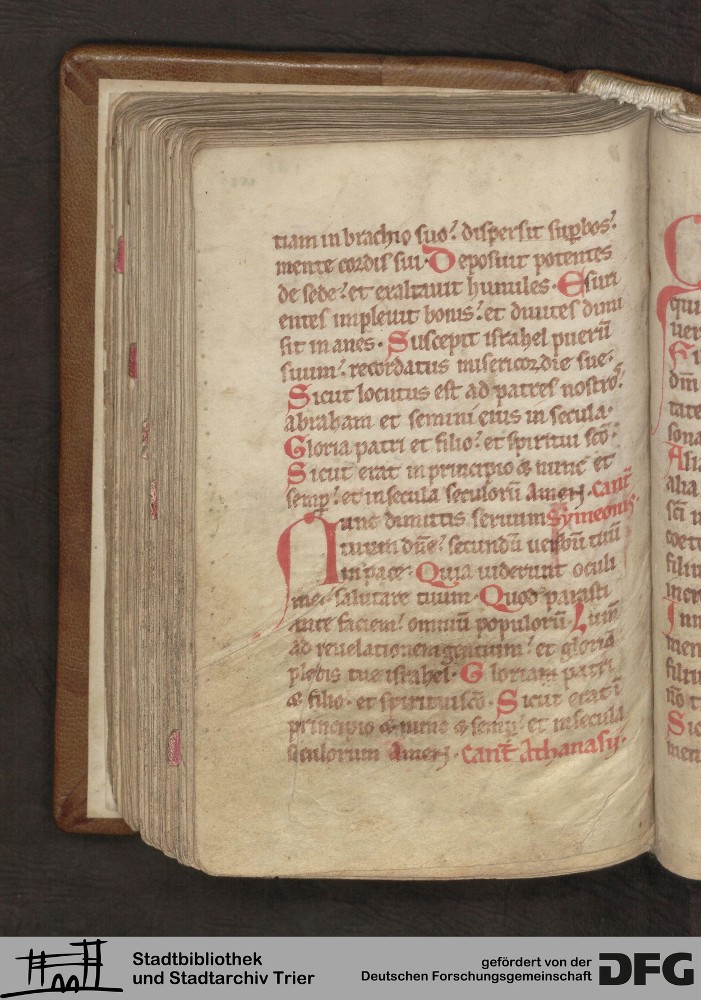 tiam in brachio suo. dispersit supbos.
mente cordis sui. Deposuit potentes
de sede. et exaltavit humiles. Esuri
entes implevit bonis. et divites dimi
sit inanes. Suscepit israhel puerū
suum. recordatus misericordie sue.
Sicut locutus est ad patres nostros.
abraham et semini eius in secula.
Gloria patri et filio. et spiritui sc̄o.
Sicut erat in principio & nunc et
semp. et in secula seculorū Amen. Cant̄
Nunc dimittis servum Symeonis.
tuum dn̄e. secundū verbū tuū
in pace. Quia viderunt oculi
mei salutare tuum. Quod parasti
ante faciem. omniū populorū. Lum̄
ad revelationem gentium. et gloriā
plebis tue israhel. Gloriam patri
& filio. et spiritui sc̄o. Sicut erat ī
principio & nunc & semp. et in secula
seculorum Amen. Cant̄ Athanasij.
Stadtbibliothek
und Stadtarchiv Trier
gefördert von der
Deutschen Forschungsgemeinschaft
DFG